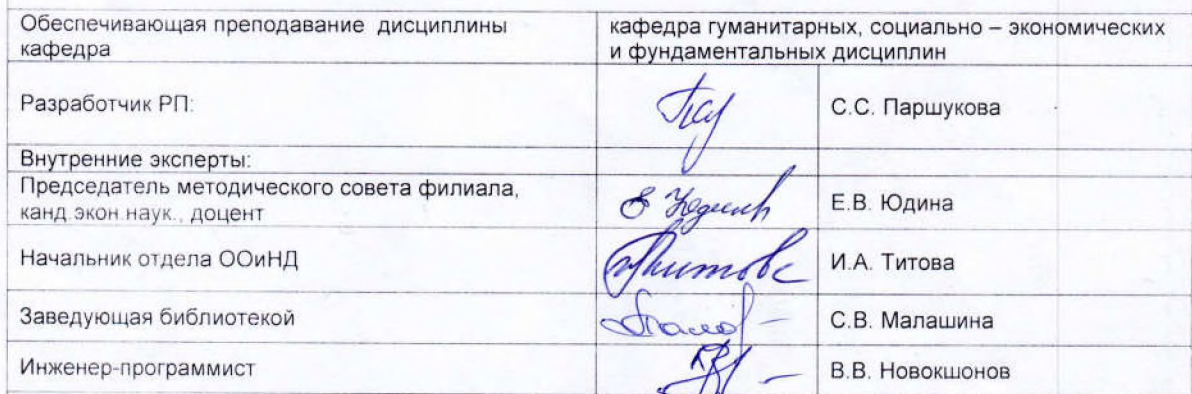 Обеспечивающая преподавание дисциплины
кафедра
кафедра гуманитарных, социально – экономических
и фундаментальных дисциплин
Разработчик РП:
С.С. Паршукова
Внутренние эксперты:
Председатель методического совета филиала,
канд.экон.наук., доцент
Е.В. Юдина
Начальник отдела ООиНД
И.А. Титова
Заведующая библиотекой
С.В. Малашина
Инженер-программист
В.В. Новокшонов